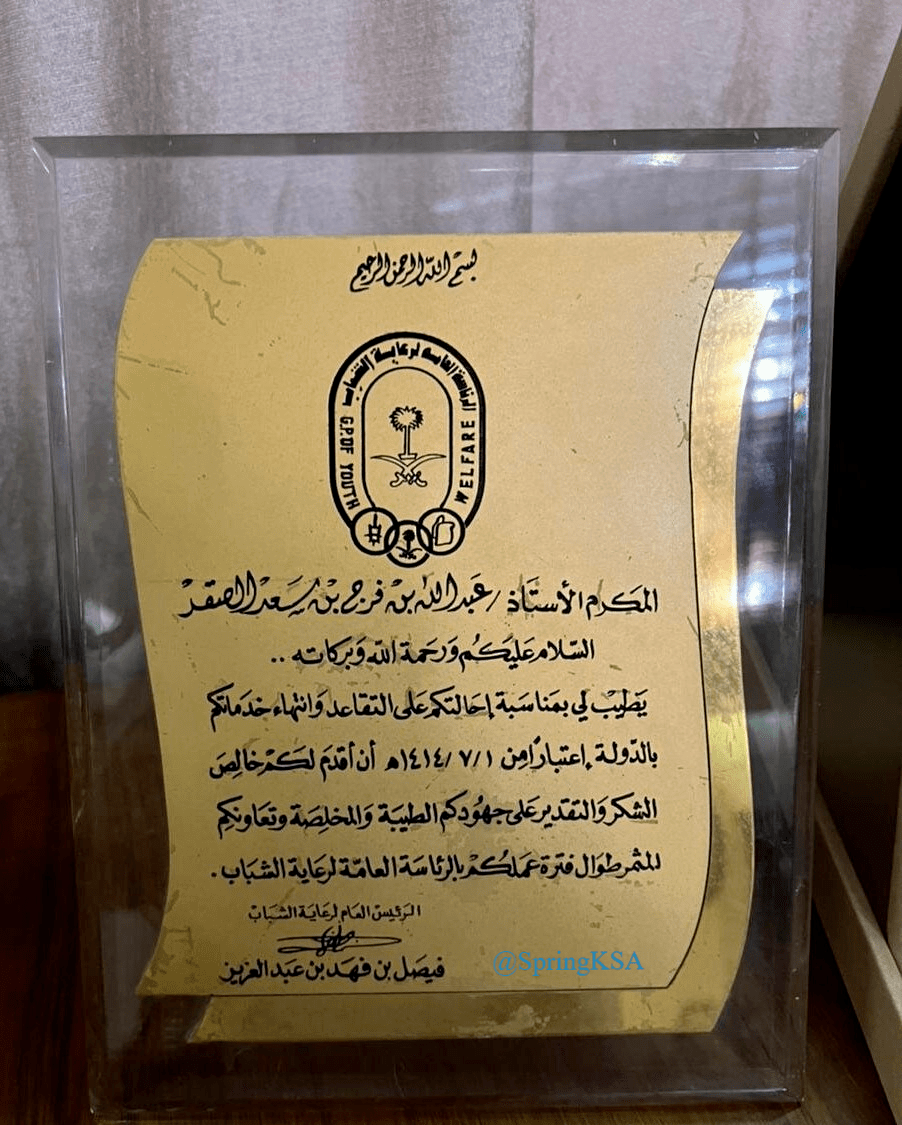 بسم الله الرحمن الرحيم
الرئاسة العامة لرعاية الشباب
G.P.OF YOUTH WELFARE
المكرم الأستاذ / عبدالله بن فرج بن سعد الصقر
السلام عليكم ورحمة الله وبركاته ..
يطيب لي بمناسبة إحالتكم على التقاعد وانتهاء خدماتكم
بالدولة إعتباراً من ١٤١٤/٧/١هـ أن أقدم لكم خالص
الشكر والتقدير على جهودكم الطيبة والمخلصة وتعاونكم
المثمر طوال فترة عملكم بالرئاسة العامة لرعاية الشباب .
الرئيس العام لرعاية الشباب
فيصل بن فهد بن عبد العزيز
@SpringKSA